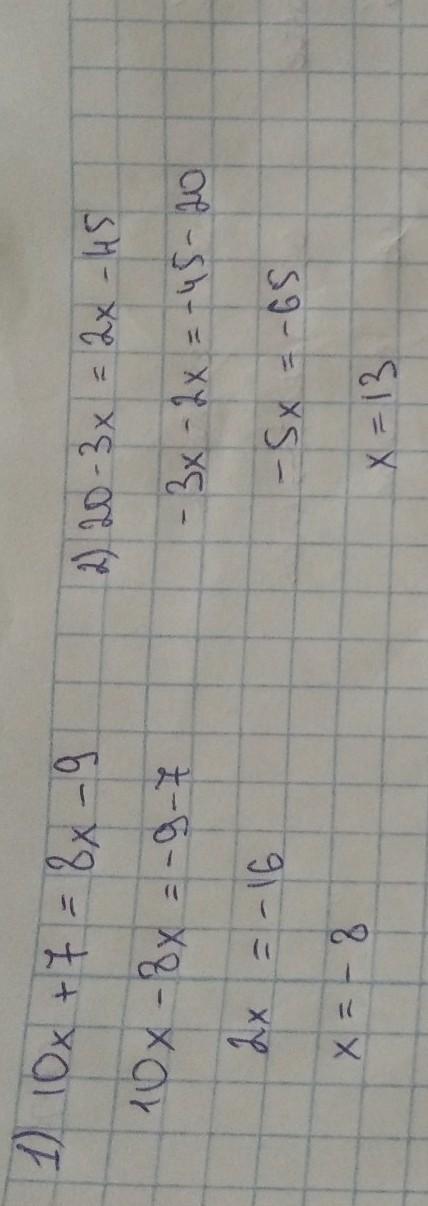 1) 10x + 7 = 8x - 9
10x - 8x = -9 - 7
2x = -16
x = -8
2) 20 - 3x = 2x - 45
-3x - 2x = -45 - 20
-5x = -65
x = 13